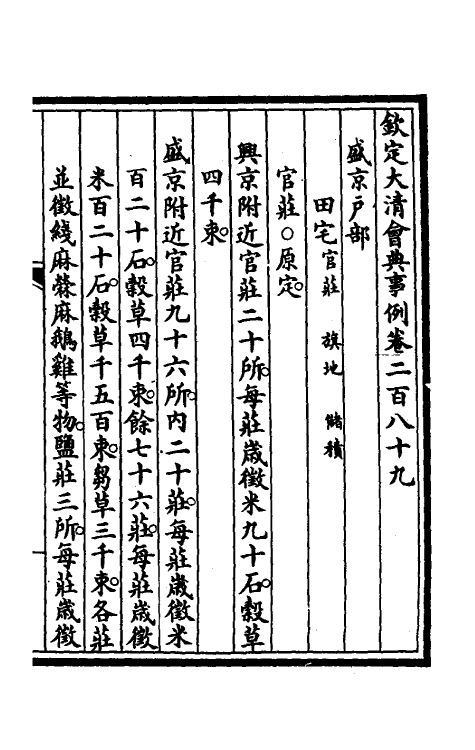 欽定大清會典事例卷二百八十九
盛京戶部
田宅官莊　旗地　儲積
官莊○原定。
興京附近官莊二十所。每莊歲徵米九十石。穀草
四千束。
盛京附近官莊九十六所。內二十莊。每莊歲徵米
百二十石。穀草四千束。餘七十六莊。每莊歲徵
米百二十石。穀草千五百束。芻草三千束。各莊
並徵綫麻檾麻鵝雞等物。鹽莊三所。每莊歲徵